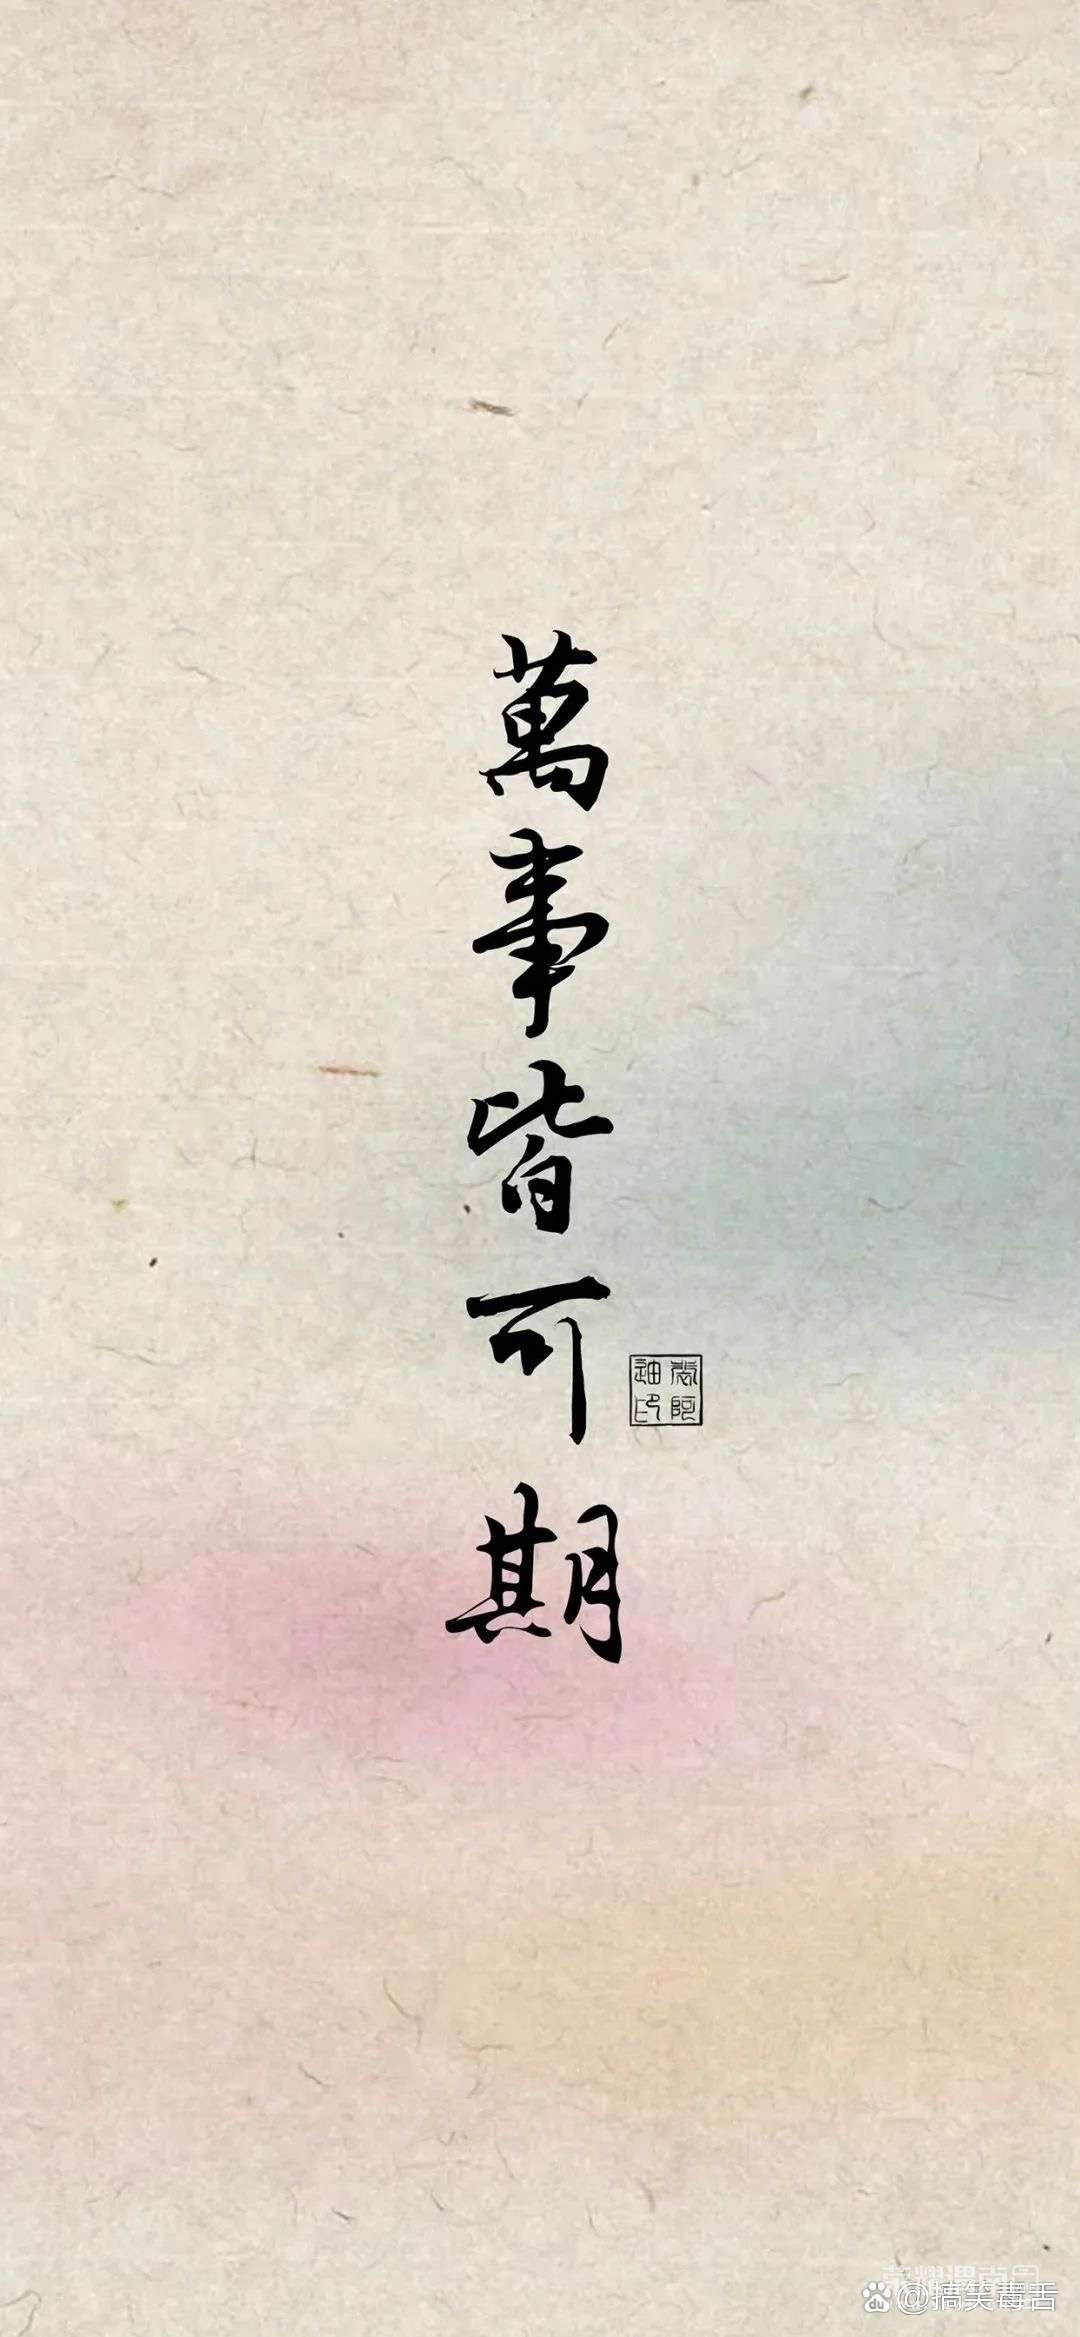 萬事皆可期
@搞笑毒舌